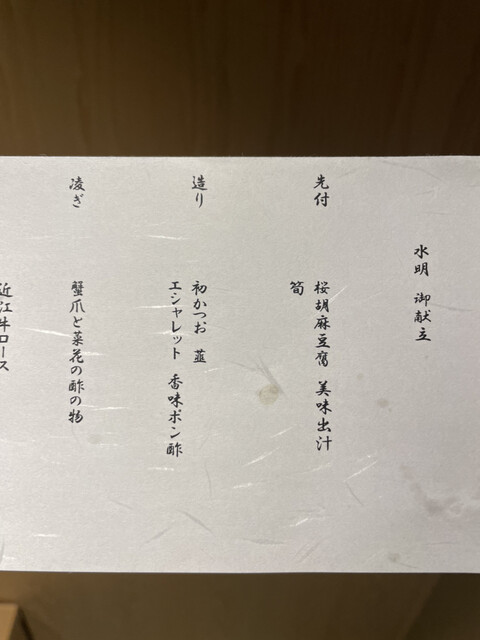 水明　御献立
先付
桜胡麻豆腐　美味出汁
筍
造り
初かつお　韮
エシャレット　香味ポン酢
凌ぎ
蟹爪と菜花の酢の物
近江牛ロース